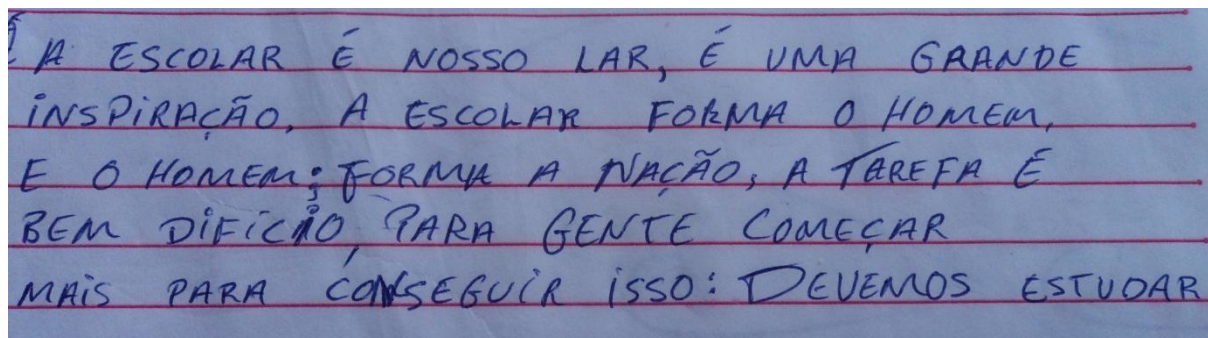 A ESCOLAR É NOSSO LAR, É UMA GRANDE
INSPIRAÇÃO. A ESCOLAR FORMA O HOMEM,
E O HOMEM; FORMA A NAÇÃO, A TAREFA É
BEM DIFICIO, PARA GENTE COMEÇAR
MAIS PARA CONSEGUIR ISSO: DEVEMOS ESTUDAR